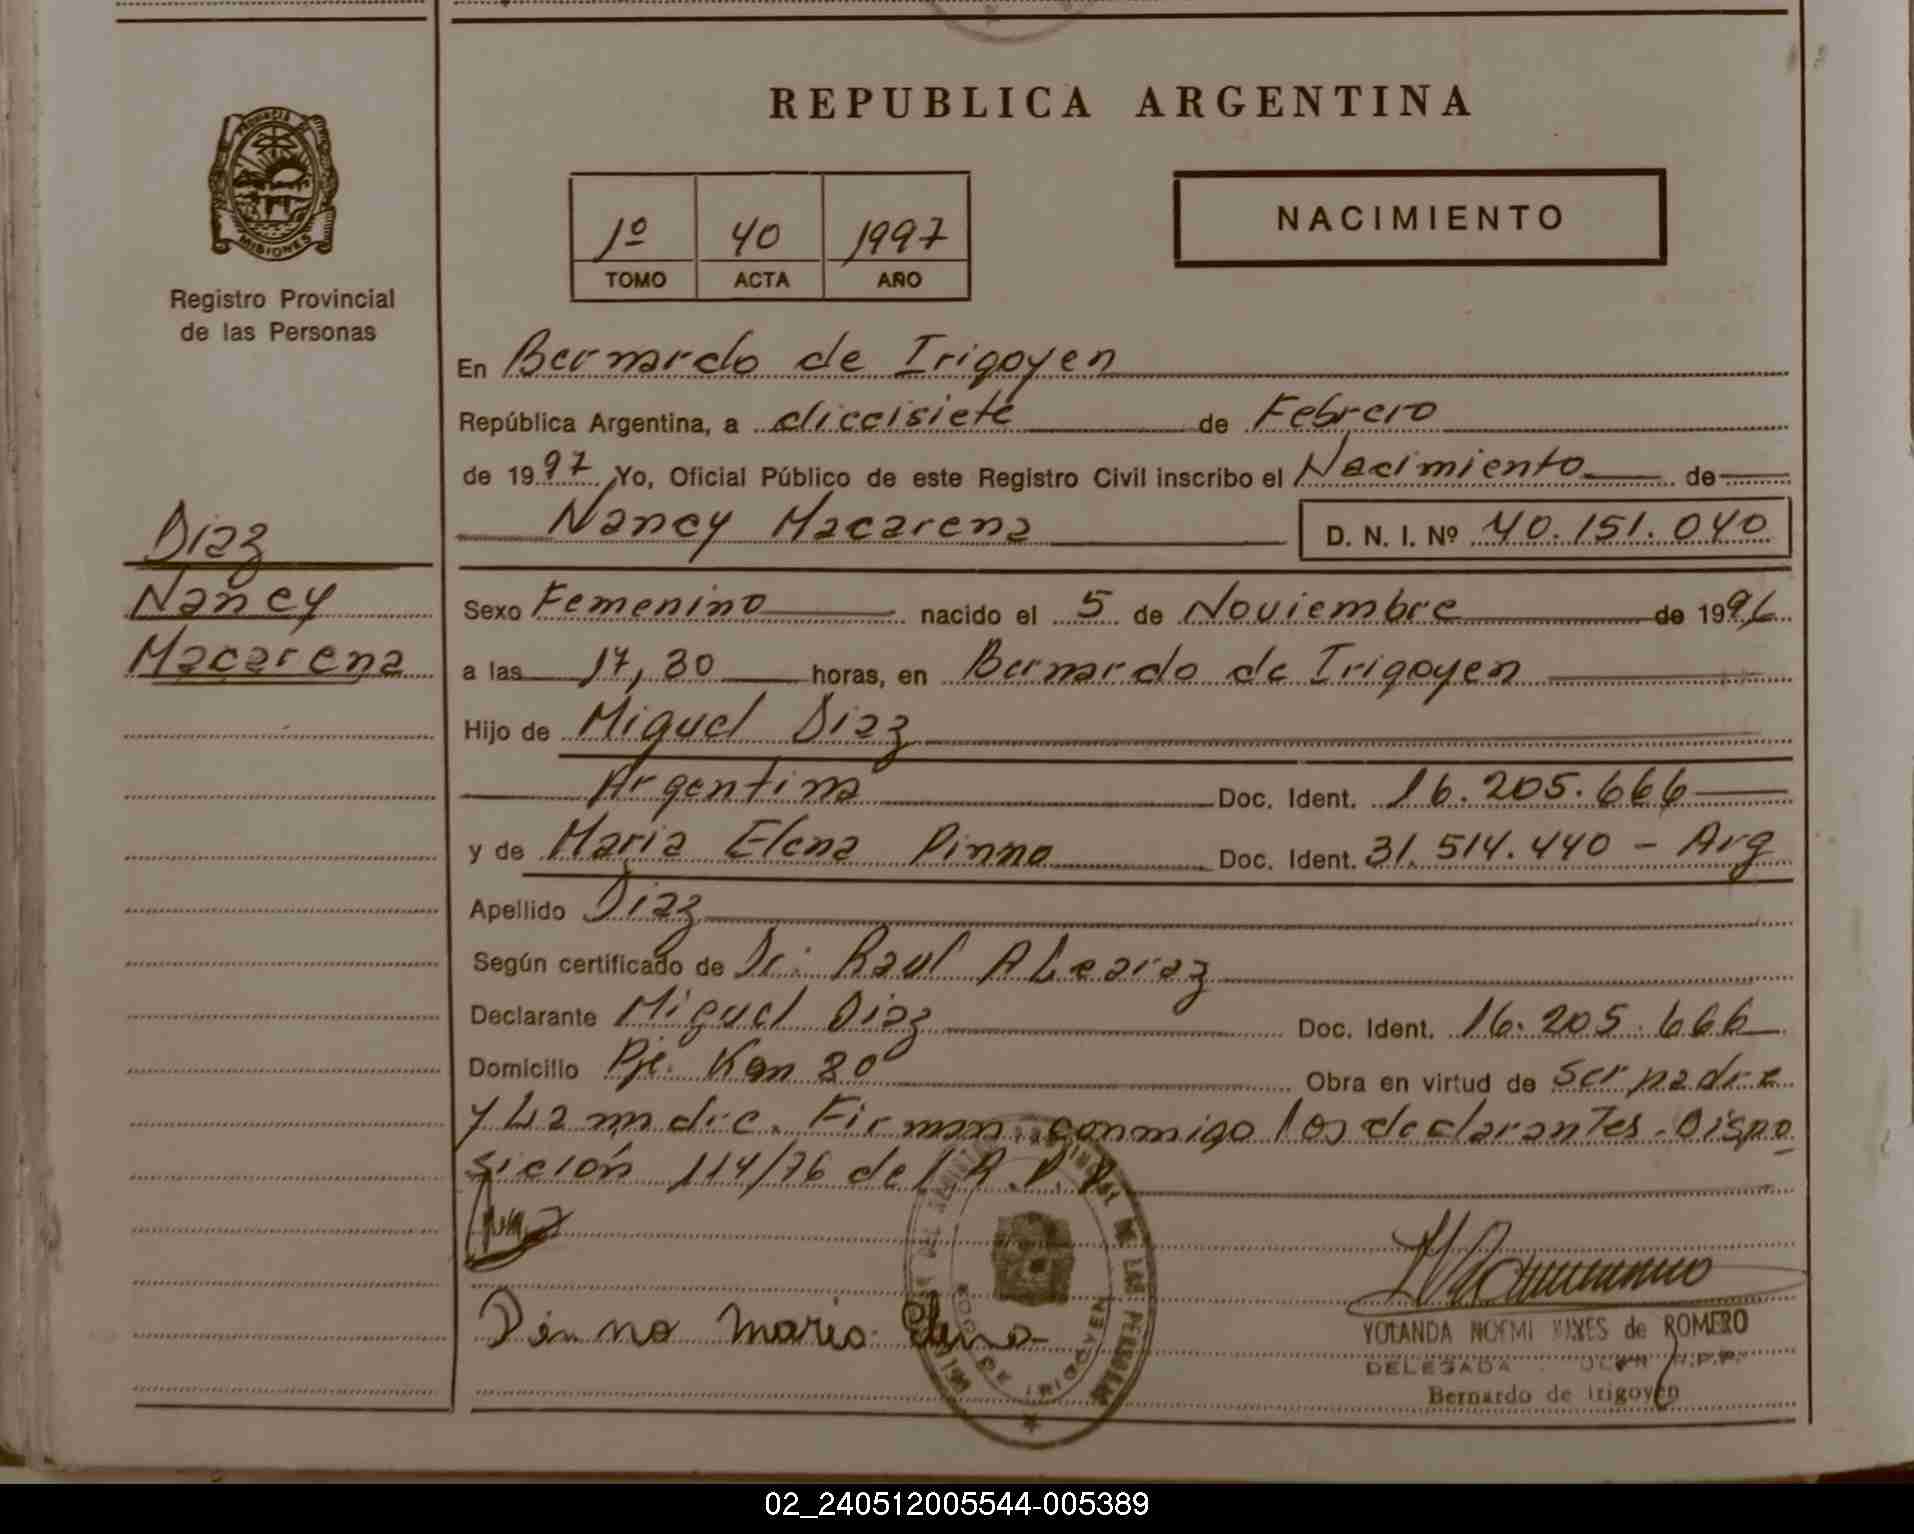 REPUBLICA ARGENTINA
PROVINCIA DE
MISIONES
Registro Provincial
de las Personas
1º 40 1997
TOMO ACTA AÑO
NACIMIENTO
En Bernardo de Irigoyen
República Argentina, a diecisiete de Febrero
de 1997 Yo, Oficial Público de este Registro Civil inscribo el Nacimiento de
Nancy Macarena D. N. I. Nº 40.151.040
Diaz
Nancy
Macarena
Sexo Femenino nacido el 5 de Noviembre de 1996
a las 17,30 horas, en Bernardo de Irigoyen
Hijo de Miguel Diaz
Argentina Doc. Ident. 16.205.666
y de Maria Elena Pinno Doc. Ident. 31.514.440 - Arg
Apellido Diaz
Según certificado de Dr. Raul ALcaraz
Declarante Miguel Diaz Doc. Ident. 16.205.666
Domicilio Pje. Km 80 Obra en virtud de ser padre
y La madre. Firman conmigo los declarantes. Dispo
sición 114/76 del R.P.P.
Pinno maria Elena
YOLANDA NOEMI de ROMERO
DELEGADA R.P.P.
Bernardo de Irigoyen
DE LAS PERSONAS
DE IRIGOYEN
02_240512005544-005389